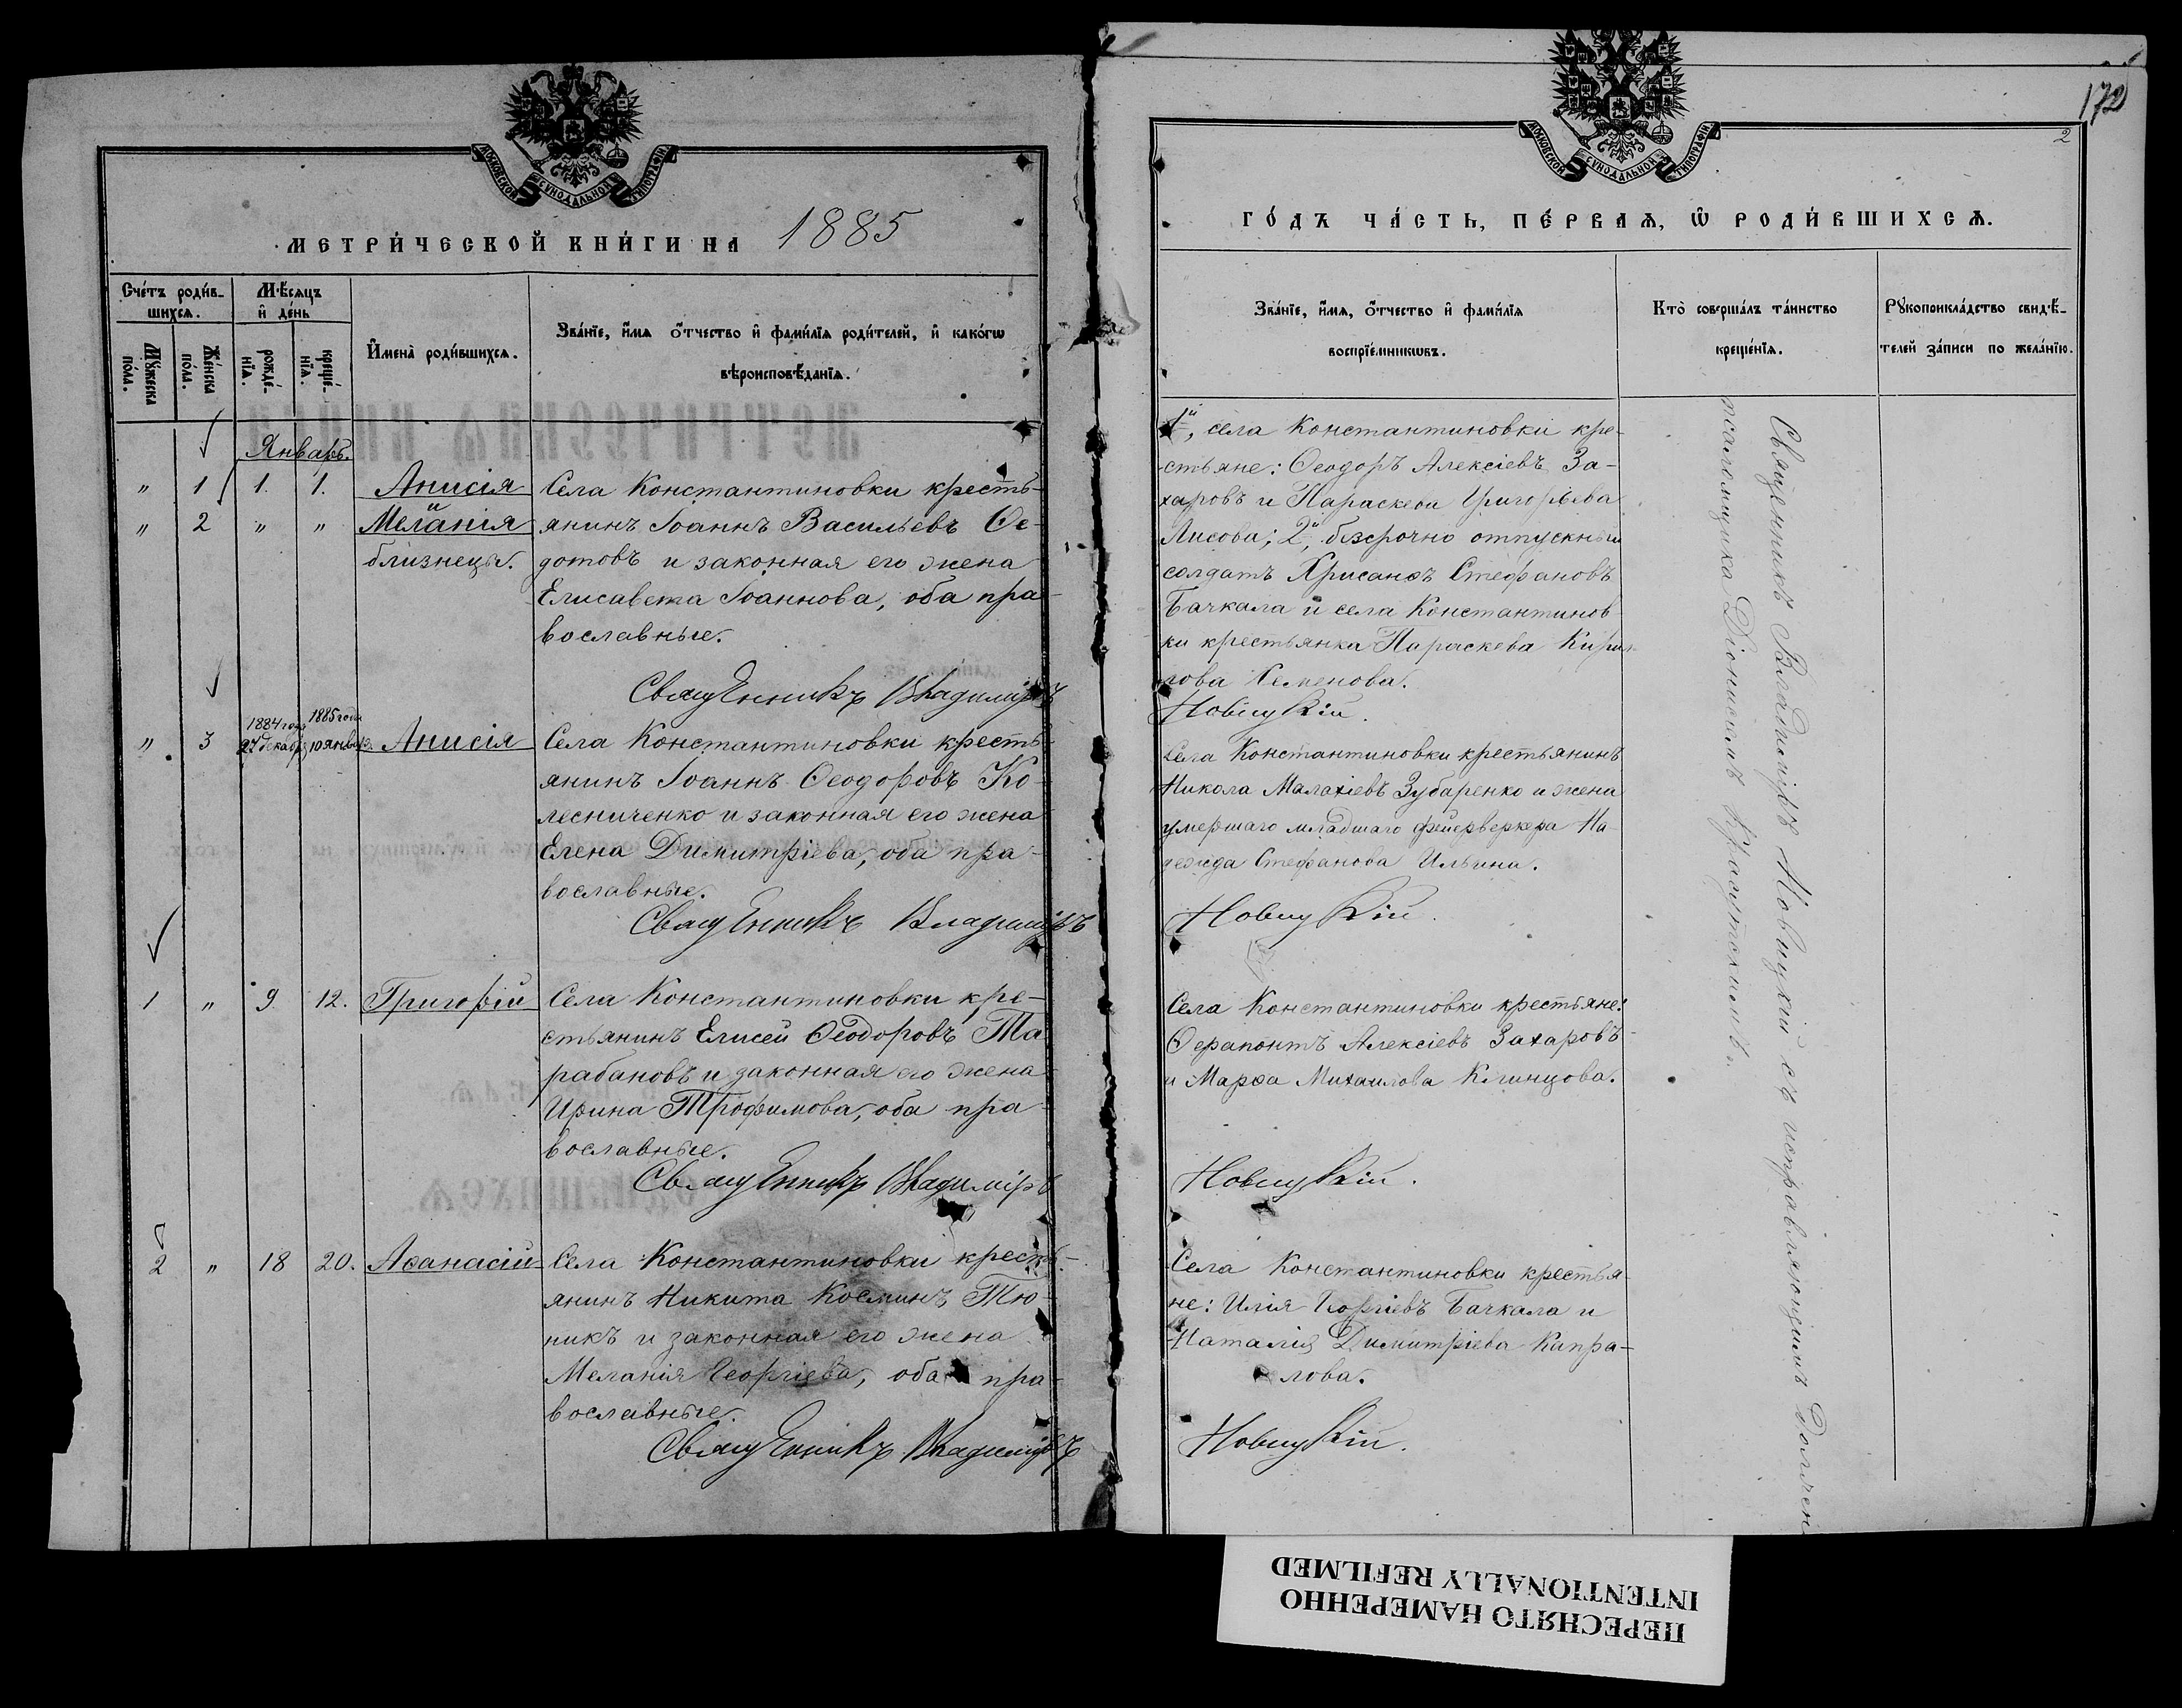 МОСКОВСКОЙ СѴНОДАЛЬНОЙ ТИПОГРАФІИ
МЕТРИ́ЧЕСКОЙ КНИ́ГИ НА 1885
Сче́тъ роди́в-
шихсѧ.
Мѣ́сѧцъ
и҆ де́нь
Мꙋ́жеска
по́ла.
Же́нска
по́ла.
рожде́-
нїѧ.
креще́-
нїѧ.
И҆мена̀ роди́вшихсѧ.
Зва́нїе, и҆́мѧ ѻ҆́тчество и҆ фами́лїѧ роди́телей, и҆ како́гѡ
вѣроисповѣ́данїѧ.
Январь.
" 1 1. 1. Анисія
" 2 " " Меланія
близнецы.
Села Константиновки кресть-
янинъ Іоаннъ Васильевъ Ѳе-
дотовъ и законная его жена
Елисавета Іоаннова, оба пра-
вославные.
Священникъ Владиміръ
1884 года 1885 года
" 3 27 декабр 10 январ. Анисія
Села Константиновки кресть-
янинъ Іоаннъ Ѳеодоровъ Ко-
лесниченко и законная его жена
Елена Димитріева, оба пра-
вославные.
Священникъ Владиміръ
1 " 9 12. Григорій
Села Константиновки кре-
стьянинъ Елисей Ѳеодоровъ Та-
рабановъ и законная его жена
Ирина Трофимова, оба пра-
вославные.
Священникъ Владиміръ
2 " 18 20. Аѳанасій
Села Константиновки кресть-
янинъ Никита Косминъ Тю-
никъ и законная его жена
Меланія Георгіева, оба пра-
вославные.
Священникъ Владиміръ
172
2
МОСКОВСКОЙ СѴНОДАЛЬНОЙ ТИПОГРАФІИ
ГО́ДЪ ЧА́СТЬ, ПЕ́РВАѦ, Ѡ҆ РОДИ́ВШИХСѦ.
Зва́нїе, и҆́мѧ, ѻ҆́тчество и҆ фами́лїѧ
воспрїе́мникѡвъ.
Кто̀ соверша́лъ та́инство
креще́нїѧ.
Рꙋкоприкла́дство свидѣ́-
телей за́писи по жела́нїю.
1й, села Константиновки кре-
стьяне: Ѳеодоръ Алексіевъ За-
харовъ и Параскева Григоріева
Лисова; 2й, безсрочно отпускный
солдатъ Хрисанѳъ Стефановъ
Бачкала и села Константинов-
ки крестьянка Параскева
Семенова.
Новицкій.
Села Константиновки крестьянинъ
Никола Малахіевъ Зубаренко и жена
умершаго младшаго фейерверкера На-
дежда Стефанова Ильина.
Новицкій.
Села Константиновки крестьяне:
Ѳерапонтъ Алексіевъ Захаровъ
и Марѳа Михаилова Клинцова.
Новицкій.
Села Константиновки крестья-
не: Илія Георгіевъ Бачкала и
Наталія Димитріева Кипра-
лова.
Новицкій.
Священникъ Владиміръ Новицкій съ исправляющимъ должен
псаломщика Діонисіемъ
ПЕРЕСНЯТО НАМЕРЕННО
INTENTIONALLY REFILMED